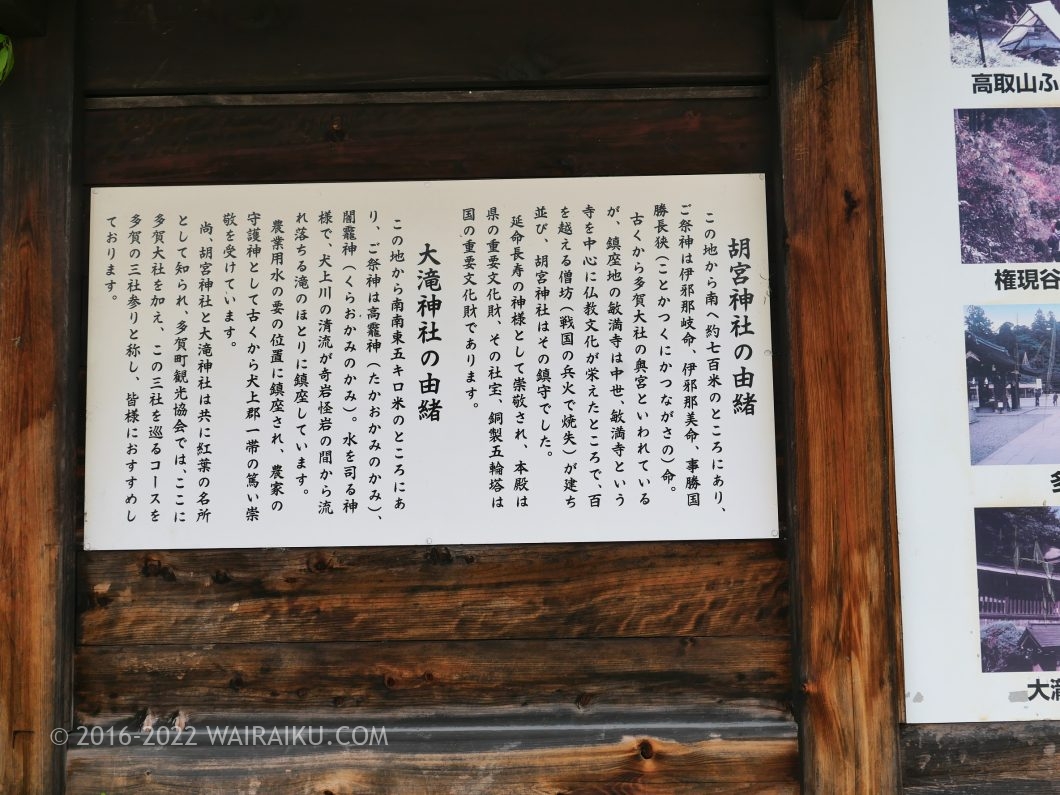 胡宮神社の由緒
この地から南へ約七百米のところにあり、
ご祭神は伊邪那岐命、伊邪那美命、事勝国
勝長狭（ことかつくにかつながさの）命。
古くから多賀大社の奥宮といわれている
が、鎮座地の敏満寺は中世、敏満寺という
寺を中心に仏教文化が栄えたところで、百
を越える僧坊（戦国の兵火で焼失）が建ち
並び、胡宮神社はその鎮守でした。
延命長寿の神様として崇敬され、本殿は
県の重要文化財、その社宝、銅製五輪塔は
国の重要文化財であります。
大滝神社の由緒
この地から南南東五キロ米のところにあ
り、ご祭神は高龗神（たかおかみのかみ）、
闇龗神（くらおかみのかみ）。水を司る神
様で、犬上川の清流が奇岩怪岩の間から流
れ落ちる滝のほとりに鎮座しています。
農業用水の要の位置に鎮座され、農家の
守護神として古くから犬上郡一帯の篤い崇
敬を受けています。
尚、胡宮神社と大滝神社は共に紅葉の名所
として知られ、多賀町観光協会では、ここに
多賀大社を加え、この三社を巡るコースを
多賀の三社参りと称し、皆様におすすめし
ております。
高取山ふ
権現谷
多
大瀧
© 2016-2022 WAIRAIKU.COM